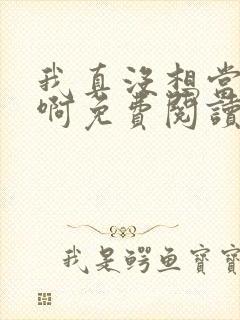 我真没想当
啊免费阅读
我是鳄鱼宝宝